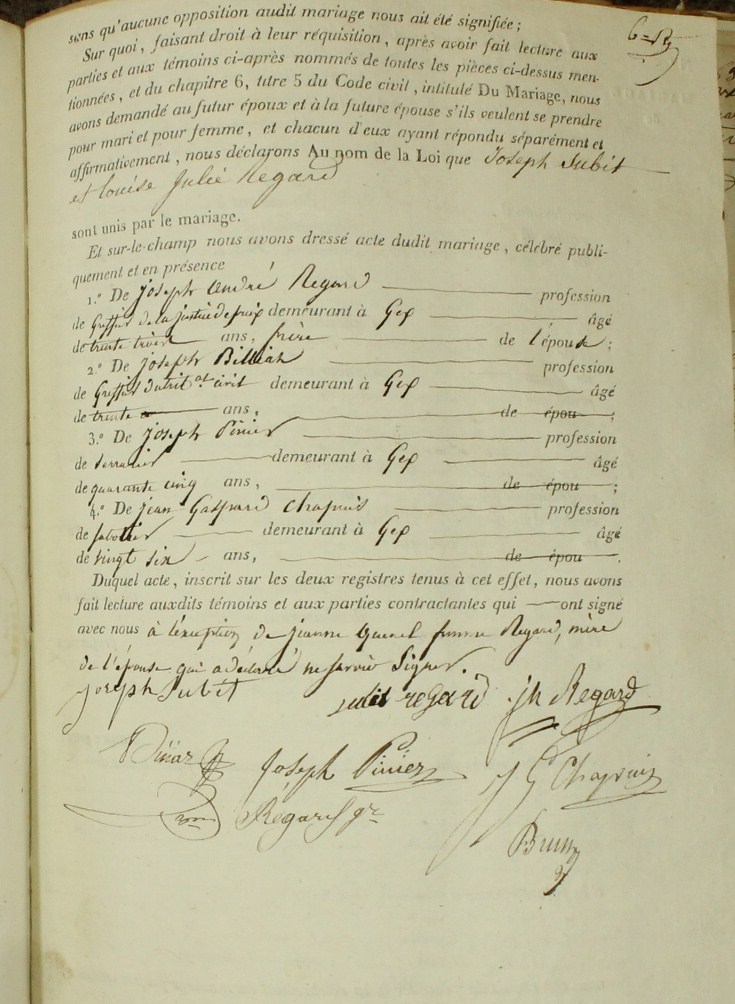 sens qu'aucune opposition audit mariage nous ait été signifiée;
Sur quoi, faisant droit à leur réquisition, après avoir fait lecture aux
parties et aux témoins ci-après nommés de toutes les pièces ci-dessus men-
tionnées, et du chapitre 6, titre 5 du Code civil, intitulé Du Mariage, nous
avons demandé au futur époux et à la future épouse s'ils veulent se prendre
pour mari et pour femme, et chacun d'eux ayant répondu séparément et
affirmativement, nous déclarons Au nom de la Loi que Joseph Subit
et Louise Julie Regard
sont unis par le mariage.
Et sur-le-champ nous avons dressé acte dudit mariage, célébré publi-
quement et en présence
1.º De Joseph André Regard profession
de Greffier de la justice de paix demeurant à Gex âgé
de trente trois ans, frère de l'épouse;
2.º De Joseph Billiat profession
de Greffier du trib.al civil demeurant à Gex âgé
de trente ans, de épou ;
3.º De Joseph Pinier profession
de Serrurier demeurant à Gex âgé
de quarante cinq ans, de épou ;
4.º De Jean Gaspard Chapuis profession
de Sabotier demeurant à Gex âgé
de vingt six ans, de épou .
Duquel acte, inscrit sur les deux registres tenus à cet effet, nous avons
fait lecture auxdits témoins et aux parties contractantes qui ont signé
avec nous à l'exception de Jeanne femme Regard, mère
de l'épouse qui a déclaré ne savoir Signer.
Joseph Subit regard jh Regard
Joseph Pinier J G Chapuis
Regard